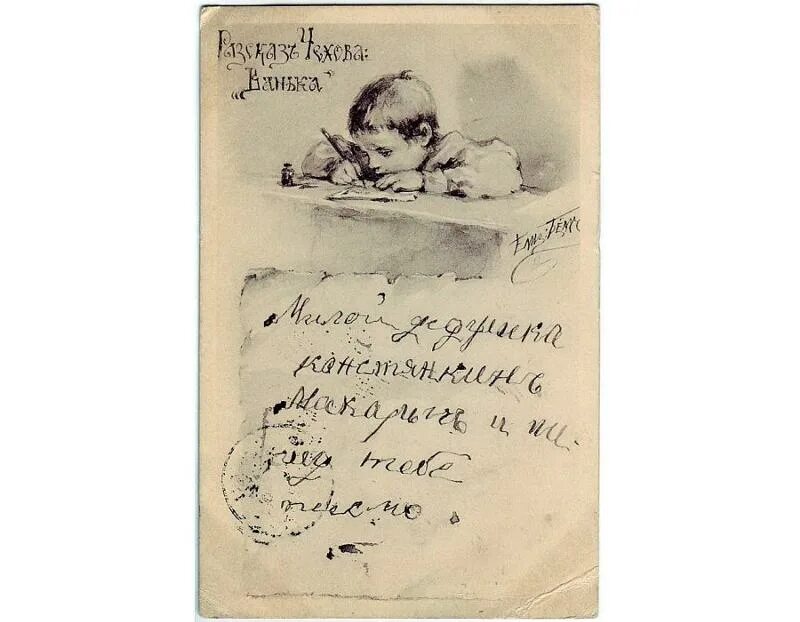 Разсказъ Чехова:
„Ванька“
Милой дедушка
констянкинъ
Макарычъ и пи-
шу тебе
письмо.